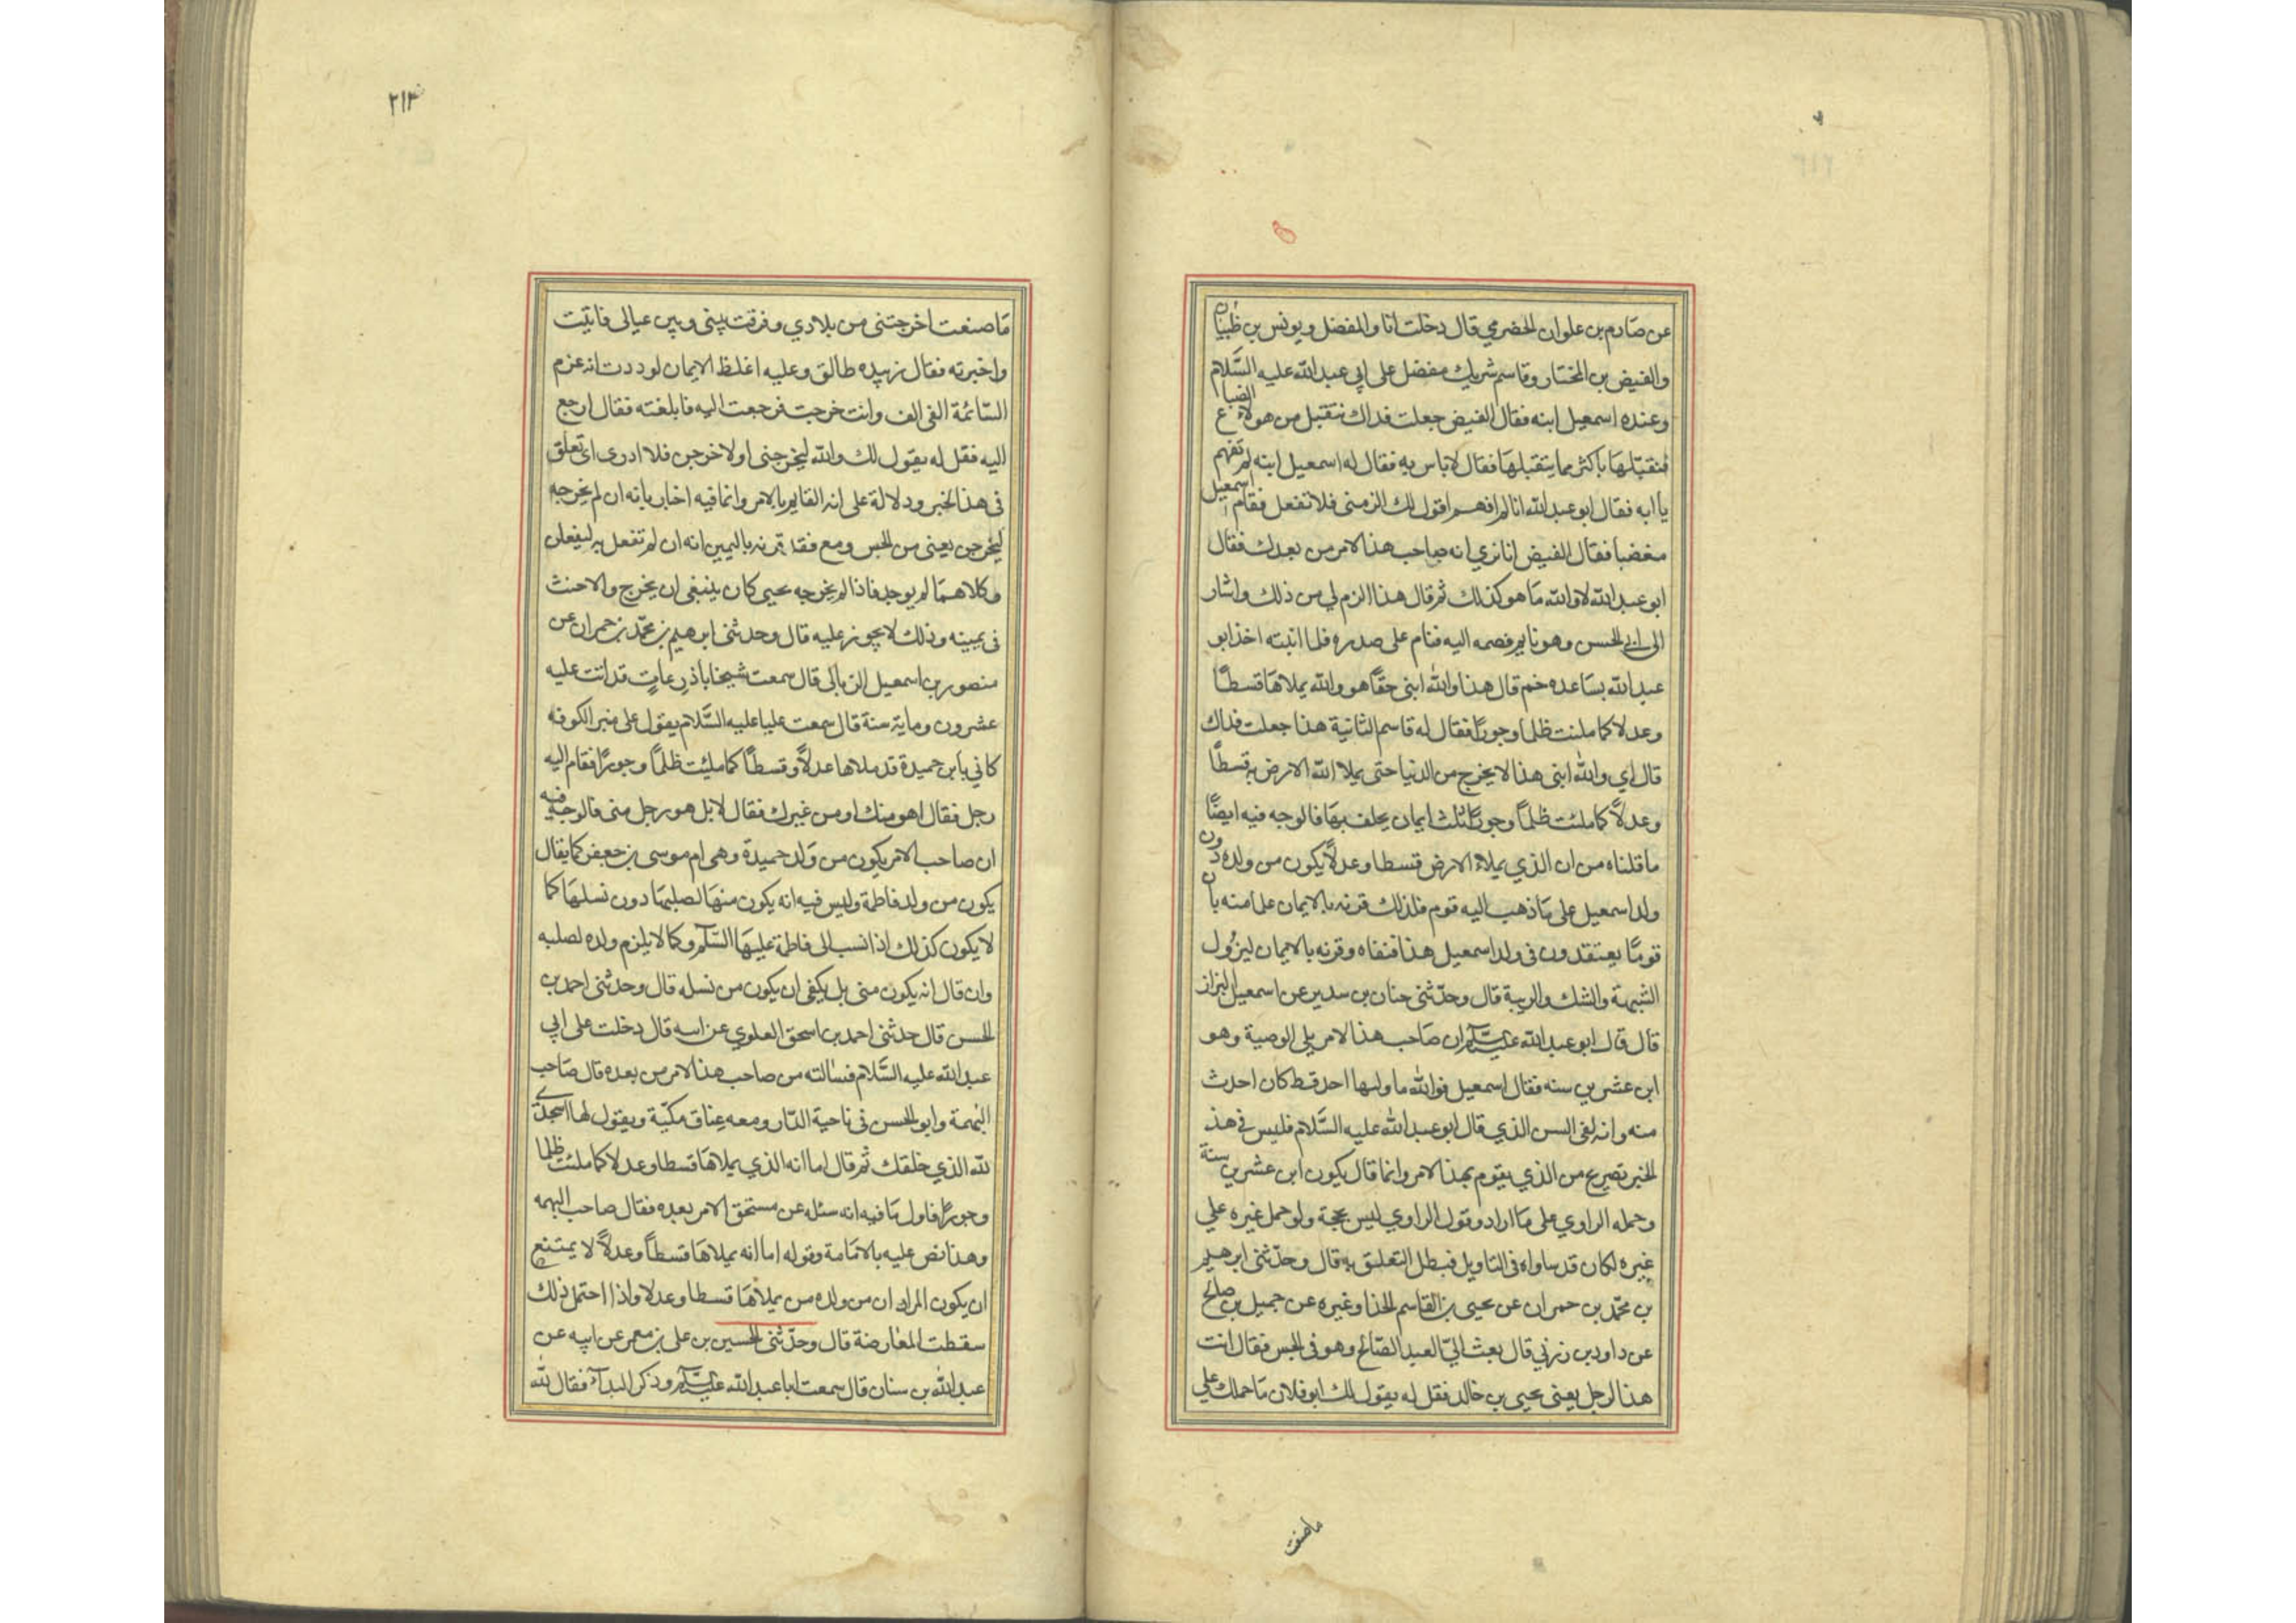 عن صارم بن علوان الحضرمي قال دخلت انا والمفضل ويونس بن ظبيان
والفيض بن المختار وقاسم شريك مفضل على ابي عبد الله عليه السَّلام
وعنده اسمعيل ابنه فقال الفيض جعلت فداك نتقبل من هولاء الضياع
فنقبّلها باكثر مما يتقبلها فقال لا باس به فقال له اسمعيل ابنه لم تفهم
يا ابه فقال ابو عبد الله انا لم افهم اقول لك الزمنى فلا تفعل فقام اسمعيل
مغضبا فقال الفيض انا نري انه صاحب هذا الامر من بعدك فقال
ابو عبد الله لا والله ما هو كذلك ثم قال هذا الزم لي من ذلك واشار
الى ابي الحسن وهو نايم فضمه اليه فنام على صدره فلما انتبه اخذ ابو
عبد الله بساعده خم قال هذا والله ابنى حقًا هو والله يملاها قسطًا
وعدلا كما ملئت ظلما وجورًا فقال له قاسم الثانية هذا جعلت فداك
قال اي والله ابنى هذا لا يخرج من الدنيا حتى يملا الله الارض به قسطًا
وعدلًا كما ملئت ظلمًا وجورًا ثلث ايمان يحلف بها فالوجه فيه ايضًا
ما قلناه من ان الذي يملاء الارض قسطا وعدلًا يكون من ولده دون
ولد اسمعيل على ما ذهب اليه قوم فلذلك قرنه بالايمان علما منه بان
قومًا يعتقدون في ولد اسمعيل هذا فنفاه وقرنه بالايمان ليزول
الشبهة والشك والريبة قال وحدّثنى حنان بن سدير عن اسمعيل البزاز
قال قال ابو عبد الله عليه السلام ان صاحب هذا الامر يلي الوصية وهو
ابن عشرين سنه فقال اسمعيل فوالله ما وليها احد قط كان احدث
منه وانه لفى السن الذي قال ابو عبد الله عليه السَّلام فليس في هذ
الخبر تصريح من الذي يقوم بهذا الامر وانما قال يكون ابن عشرين سنة
وحمله الراوي على ما اراد وقول الراوي ليس بحجة ولو حمل غيره علي
غيره لكان قد ساواه في التاويل فبطل التعلق به قال وحدّثنى ابرهيم
بن محمّد بن حمران عن يحيى بن القاسم الحذا وغيره عن جميل بن صالح
عن داود بن زربي قال بعث اليّ العبد الصّالح وهو في الحبس فقال انت
هذا لرجل يعنى يحيى بن خالد فقل له يقول لك ابو فلان ما حملك علي
ما صنعت
٢١٣
ما صنعت اخرجتنى من بلادي وفرقت بينى وبين عيالى فاتيت
واخبرته فقال زبيده طالق وعليه اغلظ الايمان لوددت انه غرم
السّائمة الفى الف وانت خرجت فرجعت اليه فابلغته فقال ارجع
اليه فقل له يقول لك والله ليخرجنى او لاخرجن فلا ادرى اى تعلق
في هذ الخبر ودلالة على انه القايم بالامر وانما فيه اخبار بانه ان لم يخرجه
ليخرجن يعنى من الحبس ومع فقد قرنه باليمين انه ان لم تفعل به ليفعلن
وكلاهما لم يوجد فاذا لم يخرجه يحيى كان ينبغى ان يخرج والا حنث
في يمينه وذلك لا يجوز عليه قال وحدثنى ابرهيم بن محمّد بن حمران عن
منصور بن اسمعيل الزبالى قال سمعت شيخا باذرعات قد اتت عليه
عشرون وماية سنة قال سمعت عليا عليه السَّلام يقول على منبر الكوفه
كاني بابن حميدة قد ملاها عدلًا وقسطًا كما ملئت ظلمًا وجورًا فقام اليه
رجل فقال اهو منك او من غيرك فقال لا بل هو رجل منى فالوجه فيه
ان صاحب الامر يكون من ولد حميدة وهى ام موسى بن جعفر كما يقال
يكون من ولد فاطمة وليس فيه انه يكون منها لصلبها دون نسلها كما
لا يكون كذلك اذا نسب الى فاطمة عليها السّلام وكما لا يلزم ولده لصلبه
وان قال انه يكون منى بل يكفى ان يكون من نسله قال وحدثنى احمد بن
الحسن قال حدثنى احمد بن اسحق العلوي عن ابيه قال دخلت على ابي
عبد الله عليه السَّلام فسالته من صاحب هذا الامر من بعده قال صاحب
البهمة وابو الحسن في ناحية الدّار ومعه عناق مكيّة ويقول لها اسجدي
لله الذي خلقك ثم قال اما انه الذي يملاها قسطا وعدلا كما ملئت ظلما
وجورًا فاول ما فيه انه سئله عن مستحق الامر بعده فقال صاحب البهمه
وهذا نص عليه بالامامة وقوله اما انه يملاها قسطًا وعدلًا لا يمتنع
ان يكون المراد ان من ولده من يملاها قسطا وعدلا واذا احتمل ذلك
سقطت المعارضة قال وحدّثنى الحسين بن على بن معمر عن ابيه عن
عبد الله بن سنان قال سمعت ابا عبد الله عليه السلام وذكر البداء فقال لله